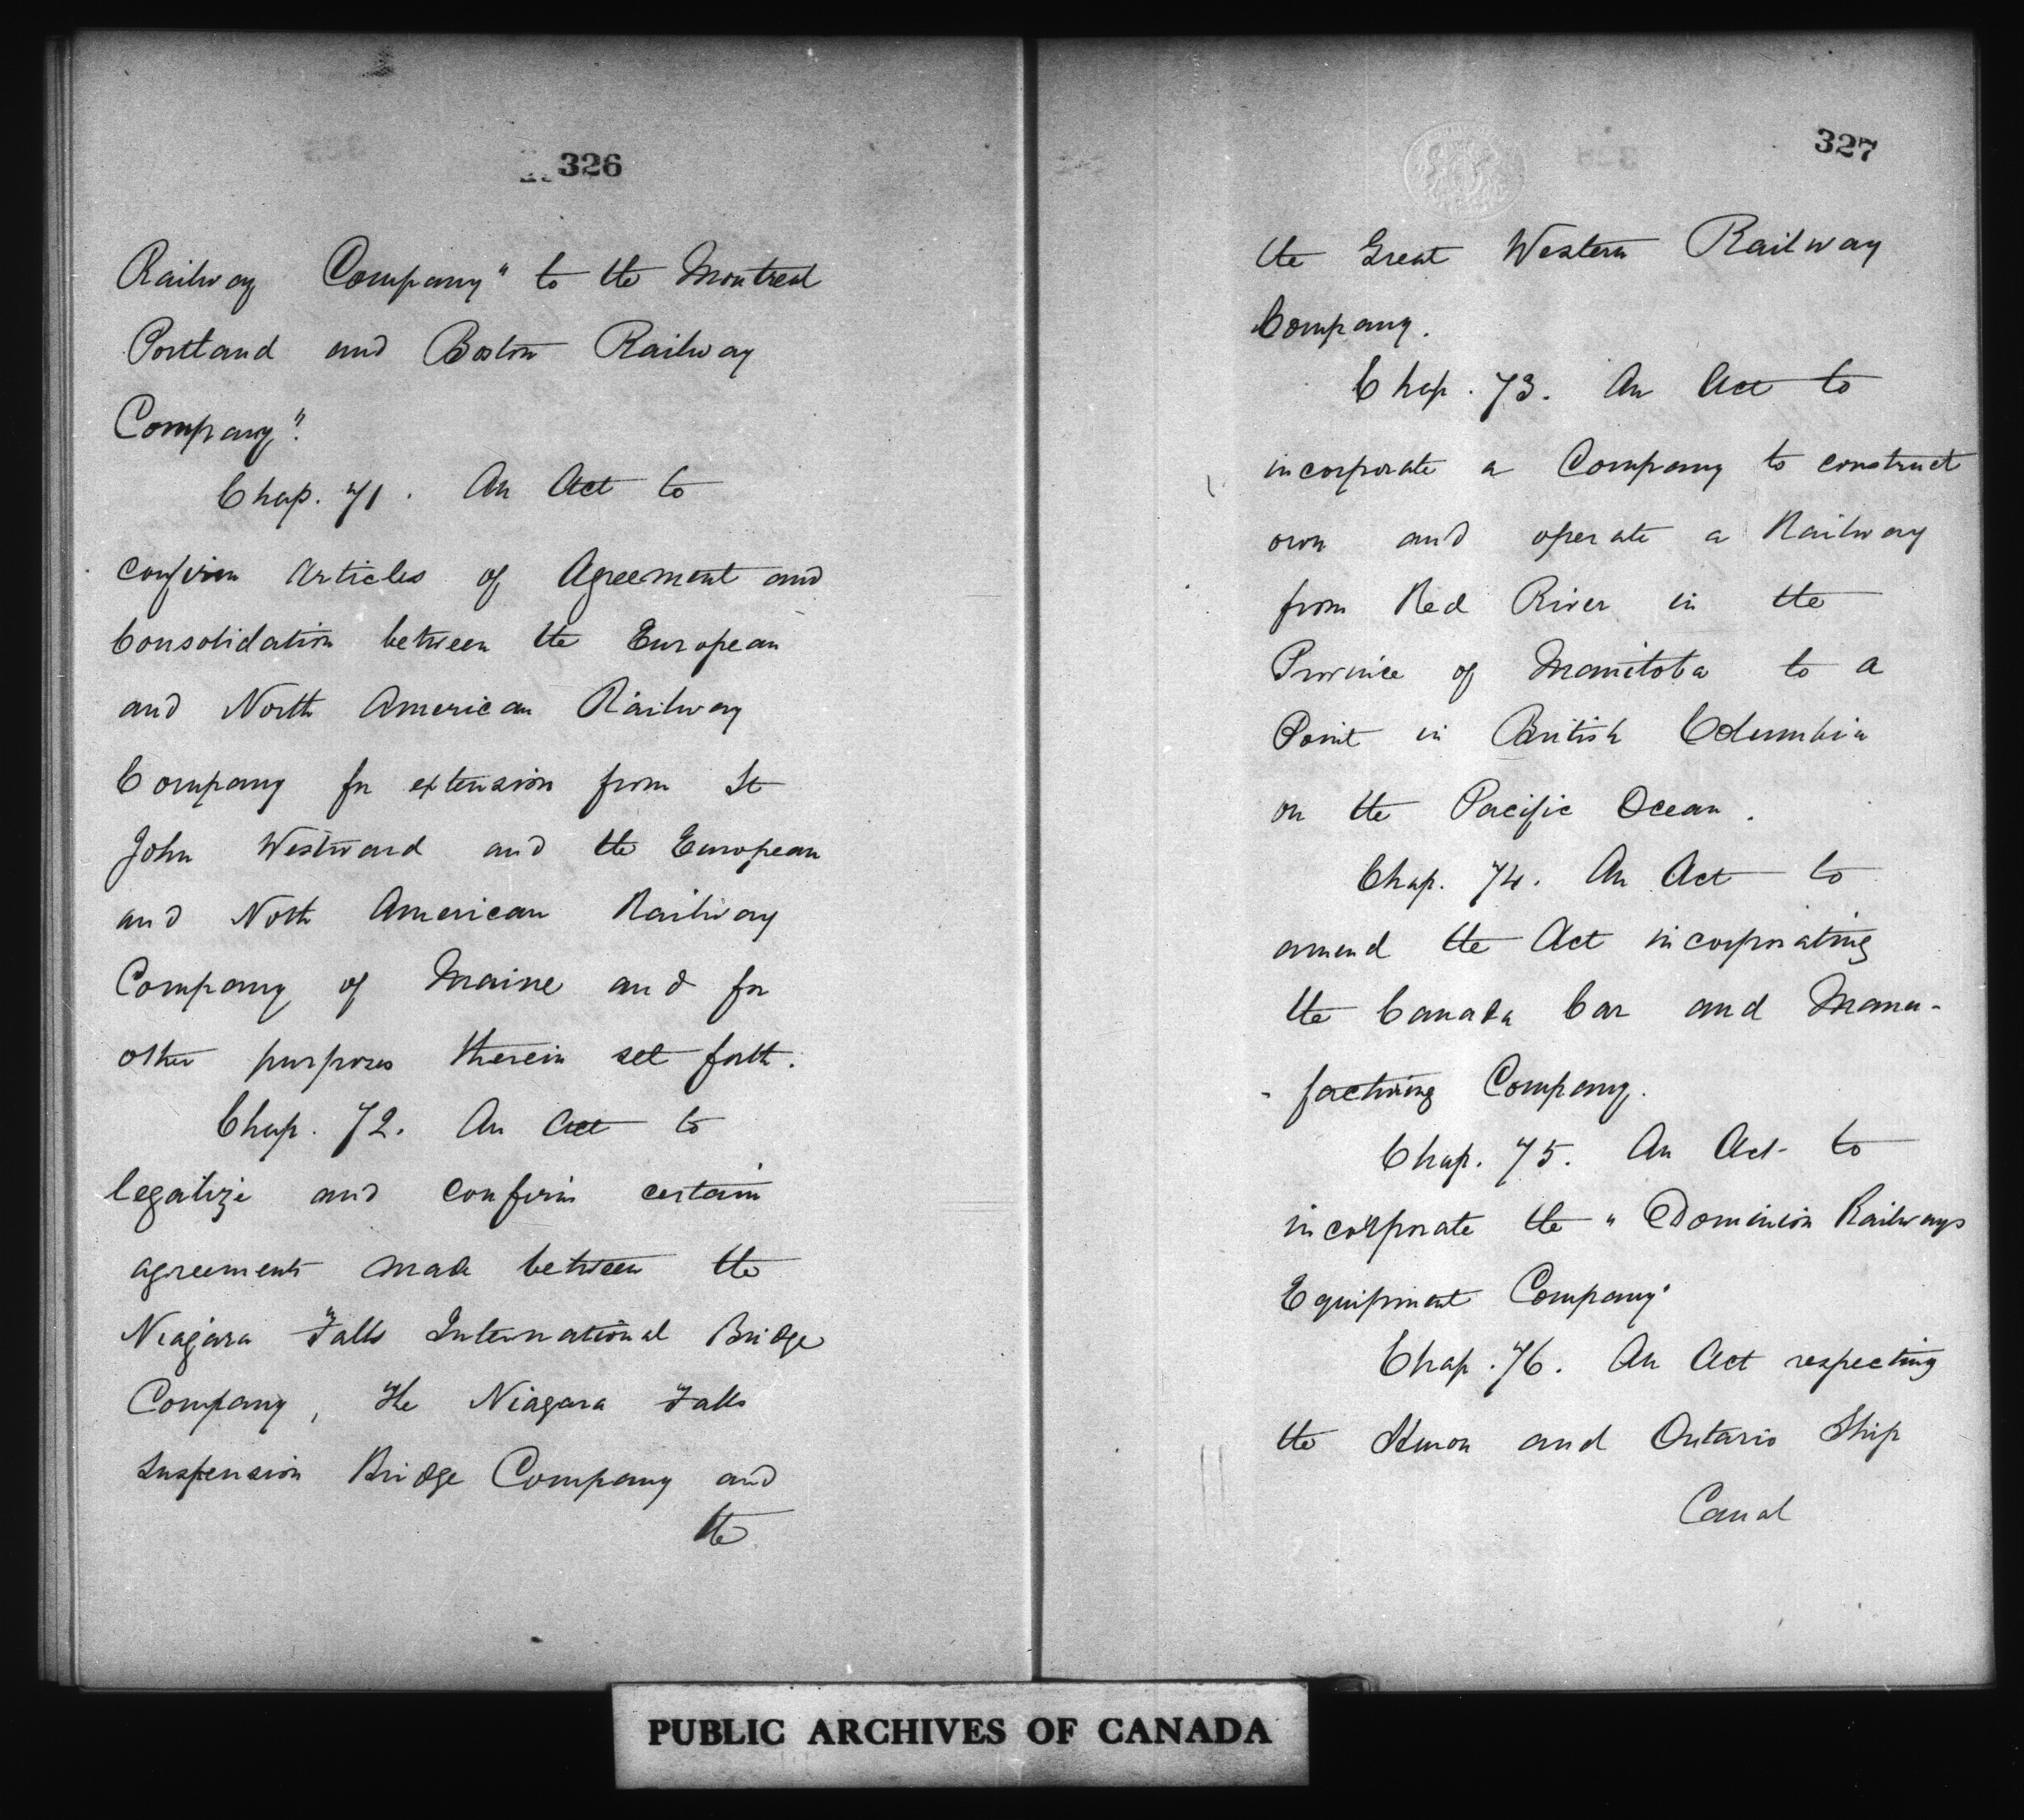 326
Railway Company" to the Montreal
Portland and Boston Railway
Company".
Chap. 71. An Act to
confirm Articles of Agreement and
Consolidation between the European
and North American Railway
Company for extension from St
John Westward and the European
and North American Railway
Company of Maine and for
other purposes therein set forth.
Chap. 72. An Act to
legalize and confirm certain
agreements made between the
Niagara Falls International Bridge
Company, The Niagara Falls
Suspension Bridge Company and
the
327
the Great Western Railway
Company.
Chap. 73. An Act to
incorporate a Company to construct
own and operate a Railway
from Red River in the
Province of Manitoba to a
Point in British Columbia
on the Pacific Ocean.
Chap. 74. An Act to
amend the Act incorporating
the Canada Car and Manu-
-facturing Company.
Chap. 75. An Act to
incorporate the "Dominion Railways
Equipment Company"
Chap. 76. An Act respecting
the Huron and Ontario Ship
Canal
PUBLIC ARCHIVES OF CANADA